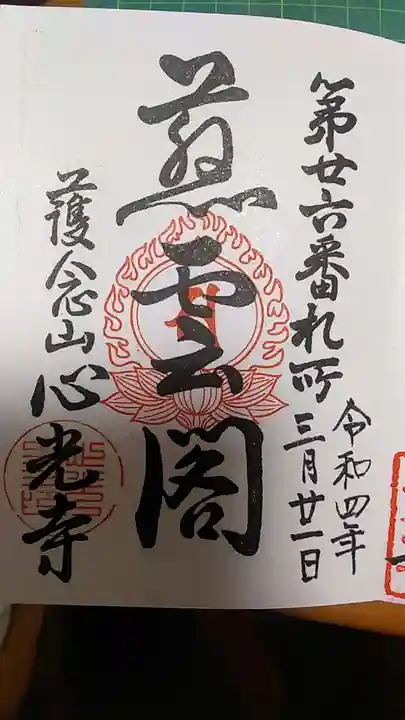 第廿六番札所
令和四年
三月廿一日
慈雲閣
護念山心光寺